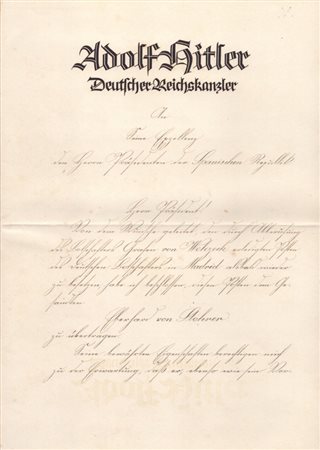 Adolf Hitler
Deutscher Reichskanzler
An
Seine Exzellenz
den Herrn Präsidenten der Spanischen Republik
Herr Präsident!
Von dem Wunsche geleitet, den durch Abberufung
des Botschafters Grafen von Welczeck erledigten Posten
des deutschen Botschafters in Madrid alsbald wieder
zu besetzen habe ich beschlossen, diesen Posten dem Ge-
sandten
Eberhard von Stohrer
zu übertragen.
Seine bewährten Eigenschaften berechtigen mich
zu der Erwartung, daß er, ebenso wie sein Vor-